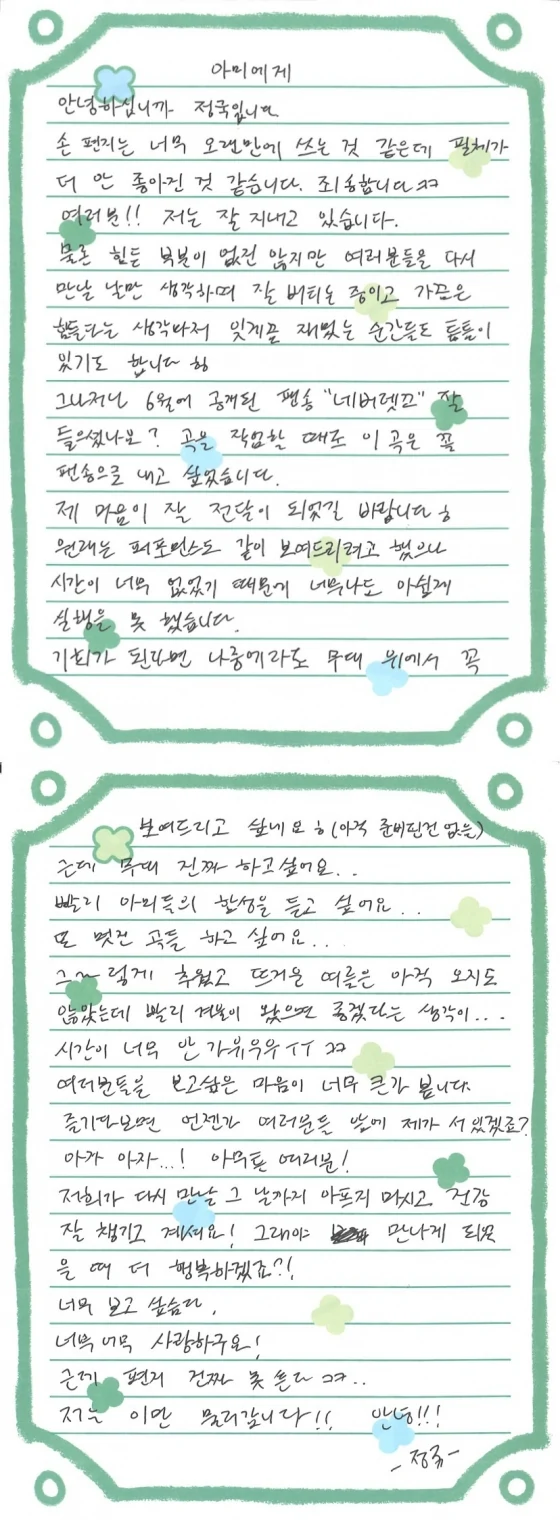 아미에게
안녕하십니까 정국입니다
손 편지는 너무 오랜만에 쓰는 것 같은데 필체가
더 안 좋아진 것 같습니다. 죄송합니다 ㅋㅋ
여러분!! 저는 잘 지내고 있습니다.
물론 힘든 부분이 없진 않지만 여러분들을 다시
만날 날만 생각하며 잘 버티는 중이고 가끔은
힘들다는 생각마저 잊게끔 재밌는 순간들도 틈틈이
있기도 합니다 ㅎㅎ
그나저나 6월에 공개된 팬송 "네버렛고" 잘
들으셨나요? 곡을 작업할 때도 이 곡은 꼭
팬송으로 내고 싶었습니다.
제 마음이 잘 전달이 되었길 바랍니다 ㅎ
원래는 퍼포먼스도 같이 보여드리려고 했으나
시간이 너무 없었기 때문에 너무나도 아쉽게
실행을 못 했습니다.
기회가 된다면 나중에라도 무대 위에서 꼭
보여드리고 싶네요 ㅎ (아직 준비된건 없음)
근데 무대 진짜 하고싶어요..
빨리 아미들의 함성을 듣고 싶어요...
또 멋진 곡들 하고 싶어요...
그~~렇게 춥고 뜨거운 여름은 아직 오지도
않았는데 빨리 겨울이 왔으면 좋겠다는 생각이...
시간이 너무 안 가유우우 ㅜㅜ ㅋㅋ
여러분들을 보고싶은 마음이 너무 큰가 봅니다.
즐기다보면 언젠간 여러분들 앞에 제가 서 있겠죠?
아자 아자...! 아무튼 여러분!
저희가 다시 만날 그 날까지 아프지 마시고 건강
잘 챙기고 계셔요! 그래야 만나게 되었
을 때 더 행복하겠죠?!
너무 보고 싶습다.
너무너무 사랑하구요!
근데 편지 진짜 못 쓴다 ㅋㅋ..
저는 이만 물러갑니다!! 안녕!!!
- 정국 -